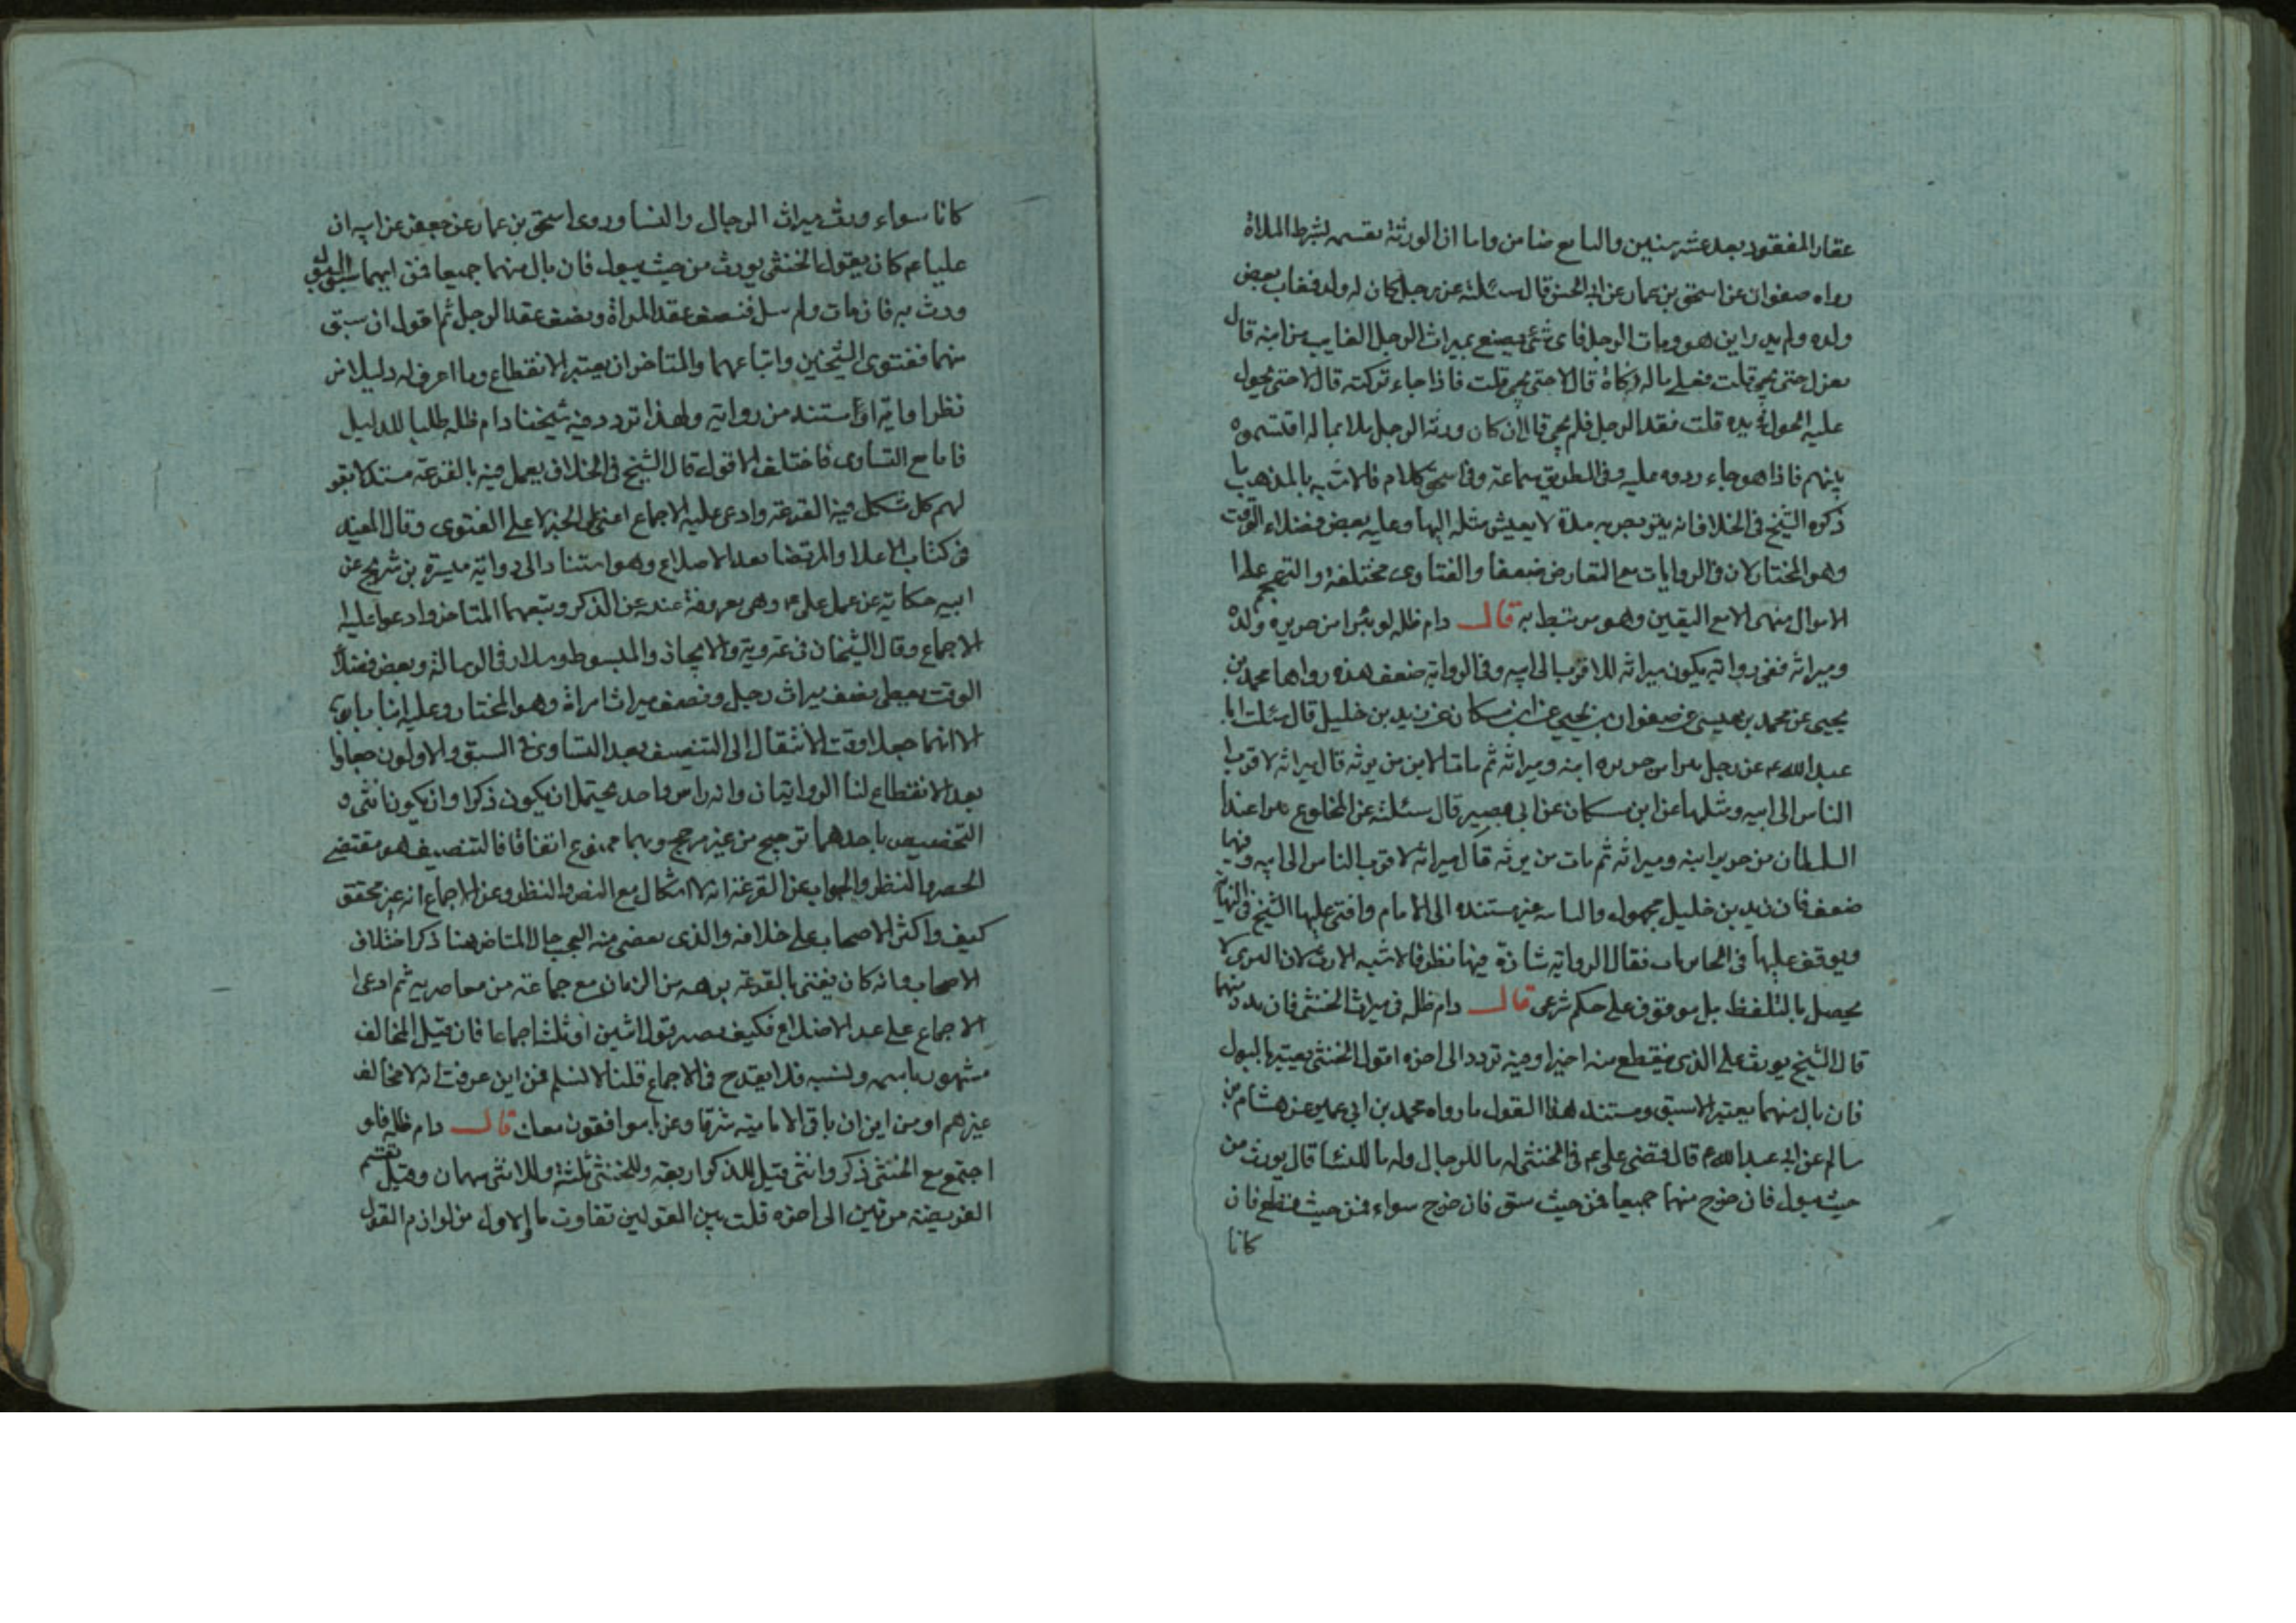 عقار المفقود بعد عشر سنين والبايع ضامن واما ان الورثة يقسم بشرط الملاة
رواه صفوان عن اسحق بن عمار عن ابي الحسن قال سئلته عن رجل كان له ولد فغاب بعض
ولده ولم يدر اين هو ومات الرجل فاى شئ يصنع بميراث الرجل الغايب من ابنه قال
يعزل حتى يجئ قلت فعلى ماله زكاة قال لا حتى يجئ قلت فاذا جاء تركته قال لا حتى يحول
عليه الحول فى يده قلت فقد الرجل فلم يجئ قال ان كان ورثة الرجل ملاء بماله اقتسموه
بينهم فاذا هو جاء ردوه عليه وفى الطريق سماعة وفى اسحق كلام فالاشبه بالمذهب ما
ذكره الشيخ فى الخلاف انه يتربص به مدة لا يعيش مثله اليها وعليه بعض فضلاء الوقت
وهو المختار لان فى الروايات مع التعارض ضعفا والفتاوى مختلفة والتهجم على
الاموال منهى الا مع اليقين وهو مرتبط به قال دام ظله لو تبرا من جريرة ولده
وميراثه ففى رواية يكون ميراثه للاقرب الى ابيه وفى الرواية ضعف هذه رواها محمد بن
يحيى عن محمد بن عيسى عن صفوان بن يحيي عن ابن مسكان عن يزيد بن خليل قال سئلت ابا
عبد الله ع عن رجل تبرا من جريره ابنه وميراثه ثم مات الابن من يرثه قال ميراثه لاقرب
الناس الى ابيه ومثلها عن ابن مسكان عن ابي بصير قال سئلته عن المخلوع تبرا عند
السلطان من جرير ابنه وميراثه ثم مات من يرثه قال ميراثه لاقرب الناس الى ابيه وفيها
ضعف فان يزيد بن خليل مجهول والثانية غير مستنده الى الامام وافتى عليها الشيخ فى النهاية
وتوقف عليها فى الحايريات فقال الرواية شاذة فيها نظر فالاشبه الارث لان التبرى لا
يحصل بالتلفظ بل موقوف على حكم شرعى قال دام ظله فى ميراث الخنثى فان بدر منهما
قال الشيخ يورث على الذى ينقطع منه اخيرا وفيه تردد الى اخره اقول الخنثى يعتبر بالبول
فان بال منهما يعتبر الاسبق ومستند هذا القول ما رواه محمد بن ابي عمير عن هشام بن
سالم عن ابي عبد الله ع قال قضى على ع فى الخنثى له ما للرجال وله ما للنسا قال يورث من
حيث يبول فان خرج منهما جميعا فمن حيث سبق فان خرج سواء فمن حيث ينقطع فان
كانا
كانا سواء ورث ميراث الرجال والنسا وروى اسحق بن عمار عن جعفر عن ابيه ان
عليا ع كان يقول الخنثى يورث من حيث يبول فان بال منهما جميعا فمن ايهما سبق البول
ورث به فان مات ولم يبل فنصف عقد المراة ونصف عقد الرجل ثم اقول ان سبق
منهما ففتوى الشيخين واتباعهما والمتاخر ان يعتبر الانقطاع وما اعرف له دليلا من
نظر اما يه او مستند من رواية ولهذا تردد فيه شيخنا دام ظله طلبا للدليل
فاما مع التساوى فاختلف الاقوال قال الشيخ فى الخلاف يعمل فيه بالقرعة مستدلا بقو
لهم كل مشكل فيه القرعة وادعى عليه الاجماع اعنى على الخبر لا على الفتوى وقال المفيد
فى كتاب الاعلام والمرتضا بعد الاضلاع وهو استنادا الى رواية ميسرة بن شريح عن
ابيه حكاية عن عمل على ع وهى معروفة عند عن الذكر وتبعهما المتاخر وادعوا عليه
الاجماع وقال الشيخان فى عزوية والايجاز والمبسوط وسلار فى الرسالة وبعض فضلاء
الوقت يعطى نصف ميراث رجل ونصف ميراث امراة وهو المختار وعليه ابنا بابويه
الا انهما جعلا وقت الانتقال الى التنصيف بعد التساوى فى السبق والاولون جعلوا
بعد الانقطاع لنا الروايتان وانه راس واحد يحتمل ان يكون ذكرا وان يكون انثى و
التخصيص باحدهما ترجيح من غير مرجح وبهما ممنوع اتفاقا فالتنصيف هو مقتضى
الحصر والنظر والجواب عن القرعة انه لا اشكال مع النص والنظر وعن الاجماع انه غير محقق
كيف واكثر الاصحاب على خلافه والذى يقضى منه العجب حال المتاخر هنا ذكر اختلاف
الاصحاب وانه كان يفتى بالقرعة برهه من الزمان مع جماعة من معاصريه ثم ادعى
الاجماع على عد الاضلاع فكيف يصير قول اثنين او ثلث اجماعا فان قيل المخالف
مشهور باسمه ونسبه فلا يقدح فى الاجماع قلنا لا نسلم فمن اين عرفت انه لا مخالف
غيرهم او من اين ان باقى الامامية شرقا وغربا موافقون معك قال دام ظله فلو
اجتمع مع الخنثى ذكر وانثى قيل للذكر اربعة وللخنثى ثلثة وللانثى سهمان وقيل تقسم
الفريضة مرتين الى اخره قلت بين القولين تفاوت ما والاول من لوازم القول